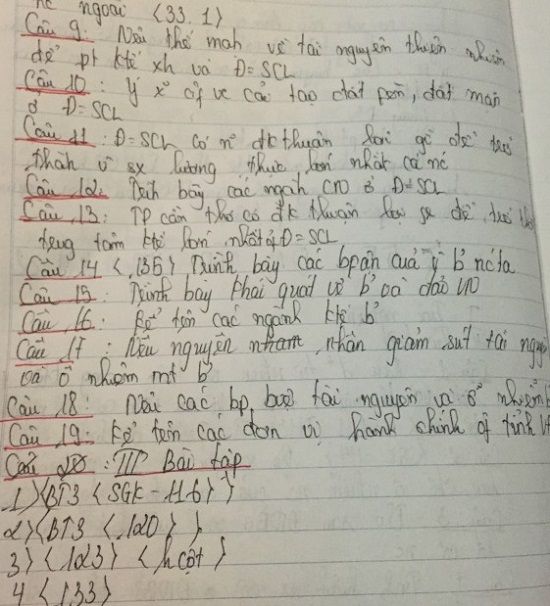 ngoài <33.1)
Câu 9: Nêu thế mạh về tài nguyên thiên nhiên
để pt ktế xh và Đ=SCL
Câu 10: Ý x² of ve cải tạo đất pèn, đất mặn
ở Đ=SCL
Câu 11: Đ=SCL có n² đk thuận lợi gì để trở
thàh v sx lương thực lớn nhất cả nc
Câu 12: Trìh bày các ngàh CN ở Đ=SCL
Câu 13: TP cần thơ có đk thuận lợi gì để trở
trug tâm ktế lớn nhất ở Đ=SCL
Câu 14 <135> Trình bày các bpận của b² nc ta
Câu 15: Trình bày khái quát về b² và đảo VN
Câu 16: Kể tên các ngành ktế b²
Câu 17: Nêu nguyên nhân giảm sút tài nguy
và ô nhiễm mt b²
Câu 18: Nêu các bp bvệ tài nguyên và ô nhiễm
Câu 19: Kể tên các đơn vị hành chính of tỉnh
Câu 20: III Bài tập
1) <BT3 <SGK - 116>>
2) <BT3 <120>>
3) <123> <h cột>
4 <133>